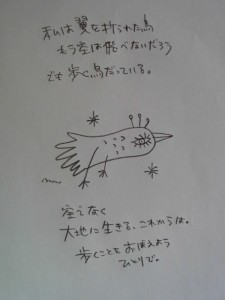 私は翼を折られた鳥
もう空は飛べないだろう
でも歩く鳥だっている。
空でなく
大地に生きる、これからは。
歩くことをおぼえよう
ひとりで。